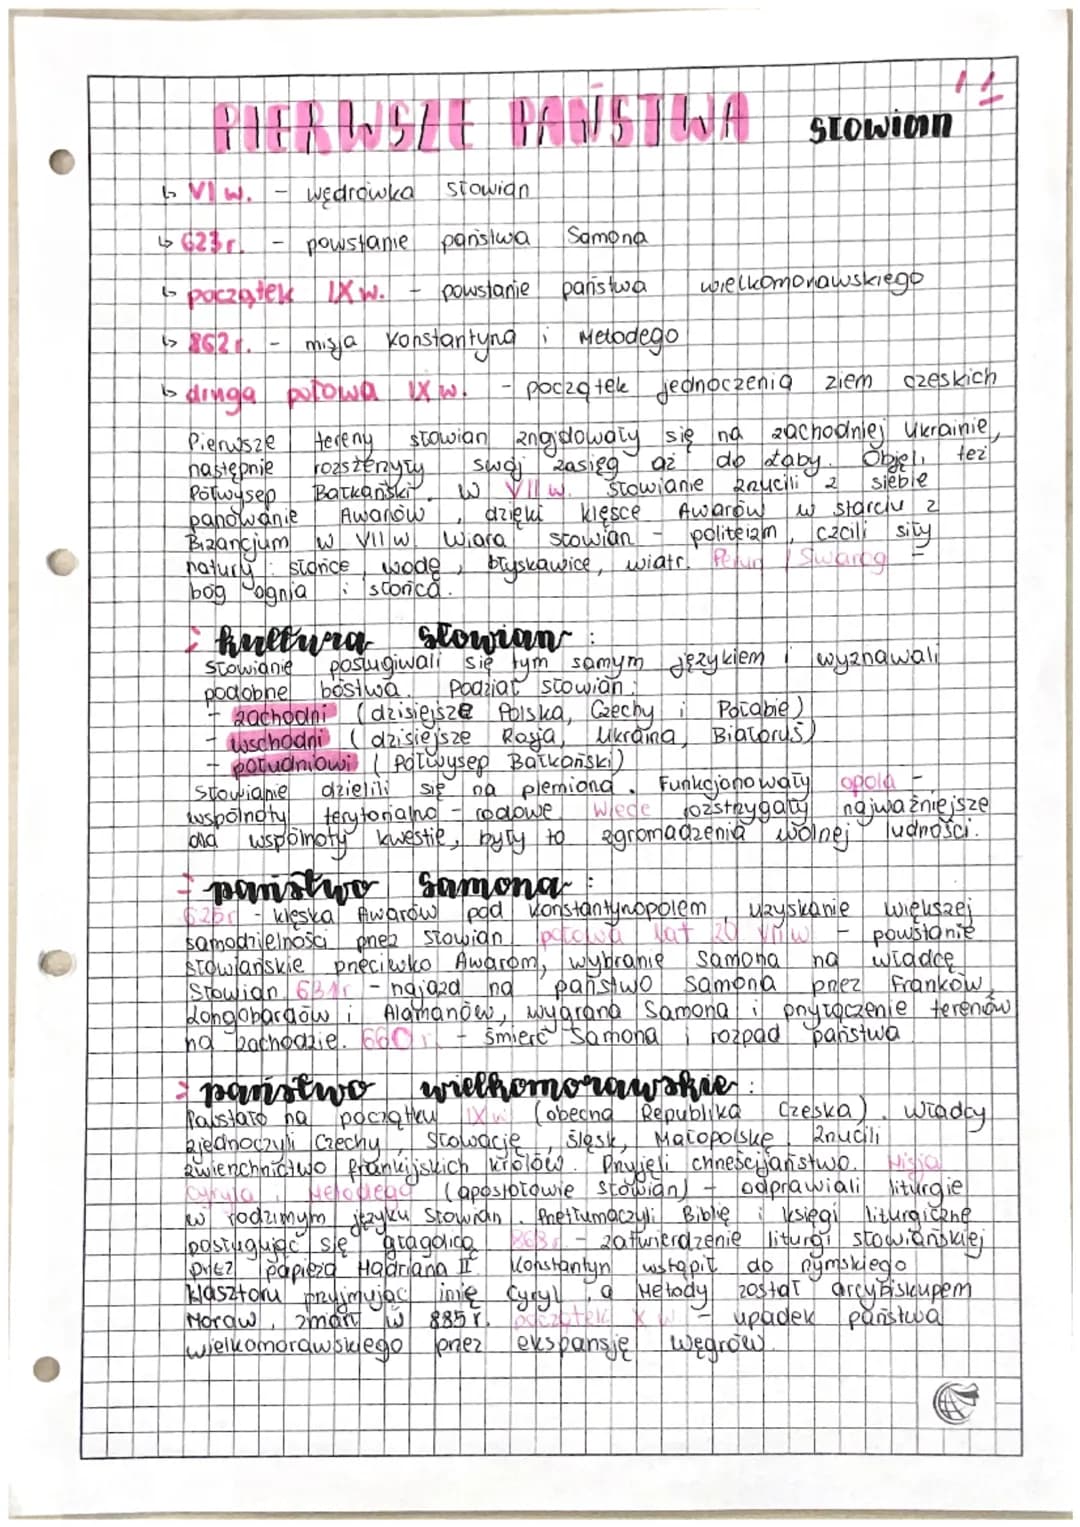 11
PIERWSZE PAŃSTWA słowian
↳ VI w. - wędrówka słowian
↳ 623 r. - powstanie państwa Samona
↳ początek IX w. - powstanie państwa wielkomorawskiego
↳ 862 r. - misja Konstantyna i Metodego
↳ druga połowa IX w. - początek jednoczenia ziem czeskich
Pierwsze tereny słowian znajdowały się na zachodniej Ukrainie,
następnie rozszerzyły swój zasięg aż do Łaby. Objęli też
Półwysep Bałkański. W VII w. Słowianie zrzucili z siebie
panowanie Awarów, dzięki klęsce Awarów w starciu z
Bizancjum w VII w. Wiara słowian - politeizm, czcili siły
natury: słońce, wodę, błyskawice, wiatr. Perun / Swaróg -
bóg ognia i słońca.
kultura słowian:
Słowianie posługiwali się tym samym językiem i wyznawali
podobne bóstwa. Podział słowian:
- zachodni (dzisiejsze Polska, Czechy i Połabie)
- wschodni (dzisiejsze Rosja, Ukraina, Białoruś)
- południowi (Półwysep Bałkański)
Słowianie dzielili się na plemiona. Funkcjonowały opola -
wspólnoty terytorialno - rodowe. Wiece rozstrzygały najważniejsze
dla wspólnoty kwestie, były to zgromadzenia wolnej ludności.
państwo Samona:
626r - klęska Awarów pod Konstantynopolem, uzyskanie większej
samodzielności przez Słowian. połowa lat 20 VII w - powstanie
słowiańskie przeciwko Awarom, wybranie Samona na władcę
Słowian. 631r - najazd na państwo Samona przez Franków,
Longobardów i Alamanów, wygrana Samona i przyłączenie terenów
na zachodzie. 660 r. - śmierć Samona i rozpad państwa
państwo wielkomorawskie:
Powstało na początku IX w (obecna Republika Czeska). Władcy
zjednoczyli Czechy, Słowację, Śląsk, Małopolskę. Zrzucili
zwierzchnictwo frankijskich królów. Przyjęli chrześcijaństwo. Misja
Cyryla i Metodego (apostołowie Słowian) - odprawiali liturgie
w rodzimym języku Słowian. Przetłumaczyli Biblię i księgi liturgiczne
posługując się głagolicą. 868r - zatwierdzenie liturgi słowiańskiej
przez papieża Hadriana II. Konstantyn wstąpił do rzymskiego
klasztoru przyjmując imię Cyryl, a Metody został arcybiskupem
Moraw, zmarł w 885 r. początek X w - upadek państwa
wielkomorawskiego przez ekspansję Węgrów.